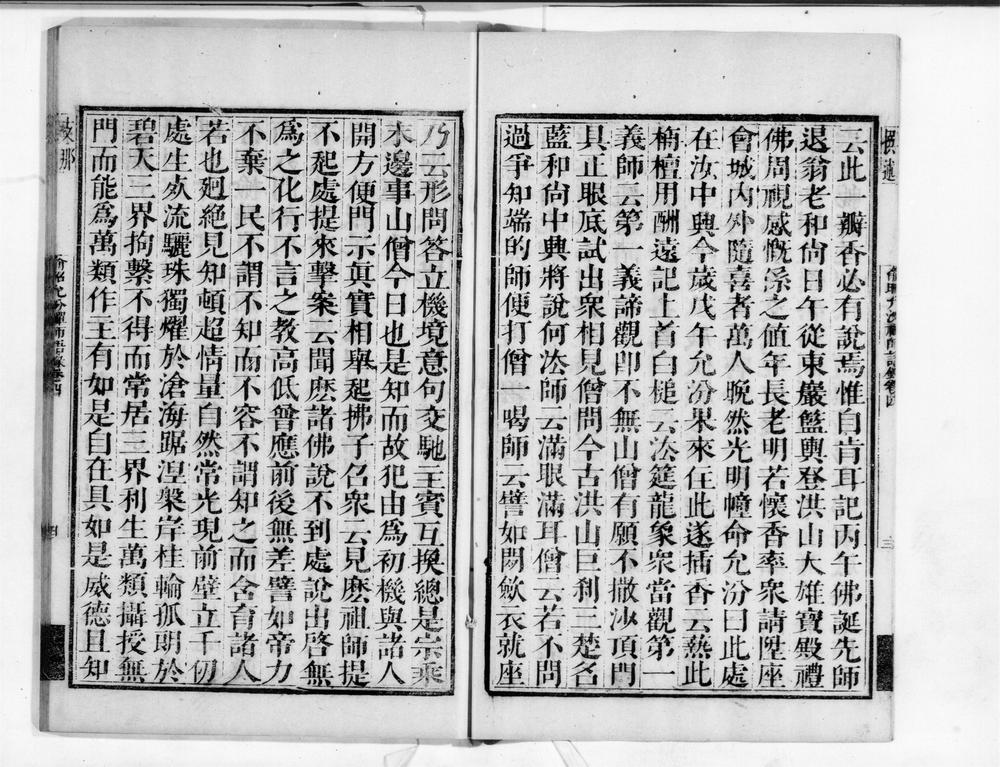 云此一瓣香必有說焉惟自肯耳記丙午佛誕先師
退翁老和尙日午從東巖籃輿登洪山大雄寶殿禮
佛周視感慨係之値年長老明若懷香率衆請陞座
會城內外隨喜者萬人晥然光明幢命允汾曰此處
在汝中興今歲戊午允汾果來住此遂插香云爇此
栴檀用酬遠記上首白槌云法筵龍象衆當觀第一
義師云第一義諦觀卽不無山僧有願不撒沙頂門
具正眼底試出衆相見僧問今古洪山巨刹三楚名
藍和尙中興將說何法師云滿眼滿耳僧云若不問
過爭知端的師便打僧一喝師云譬如閼歛衣就座
乃云形問答立機境意句交馳主賓互換總是宗乘
末邊事山僧今日也是知而故犯由爲初機與諸人
開方便門示眞實相舉起拂子召衆云見麽祖師提
不起處提來擊案云聞麽諸佛說不到處說出啓無
爲之化行不言之教高低曾應前後無差譬如帝力
不棄一民不謂不知而不容不謂知之而含育諸人
若也廻絕見知頓超情量自然常光現前壁立千仞
處生死流驪珠獨耀於滄海踞涅槃岸桂輪孤朗於
碧天三界拘繫不得而常居三界利生萬類攝授無
門而能爲萬類作主有如是自在具如是威德且知